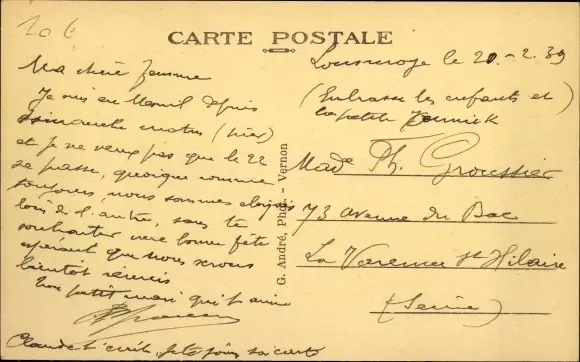 20 6
CARTE POSTALE
le 20-2.39
Ma chère femme
Je suis au Mesnil depuis
dimanche matin (hier)
et je ne veux pas que le 22
se passe, quoique comme
toujours, nous sommes éloignés
loin de l'autre, sans te
souhaiter une bonne fête
espérant que nous serons
bientôt réunis
ton petit mari qui t'aime
(Embrasse les enfants et)
la petite Jannick
G. André, Phot. - Vernon
Made Ph. Groussier
73 avenue du Bac
La Varenne St Hilaire
(Seine)